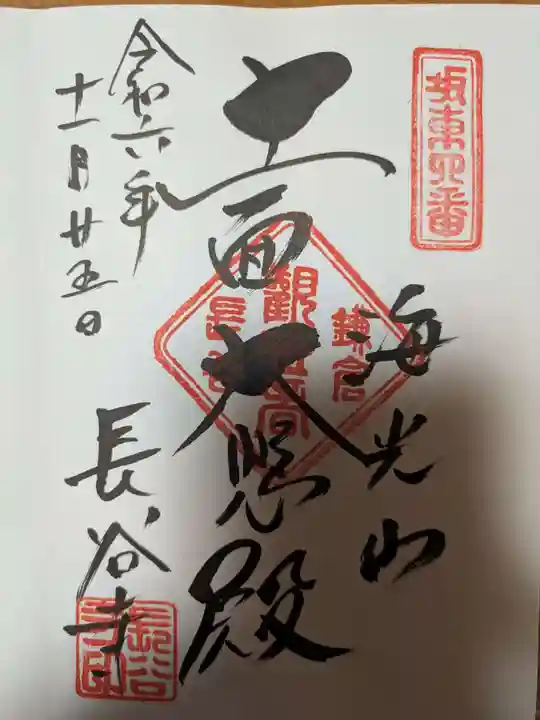 坂東四番
海光山
鎌倉
十一面大悲殿
令和六年
十一月廿五日
長谷寺
長谷寺印